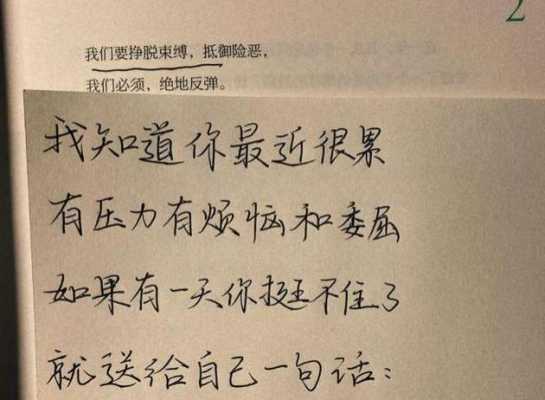 2
我们要挣脱束缚，抵御险恶，
我们必须，绝地反弹。
我知道你最近很累
有压力有烦恼和委屈
如果有一天你挺不住了
就送给自己一句话：